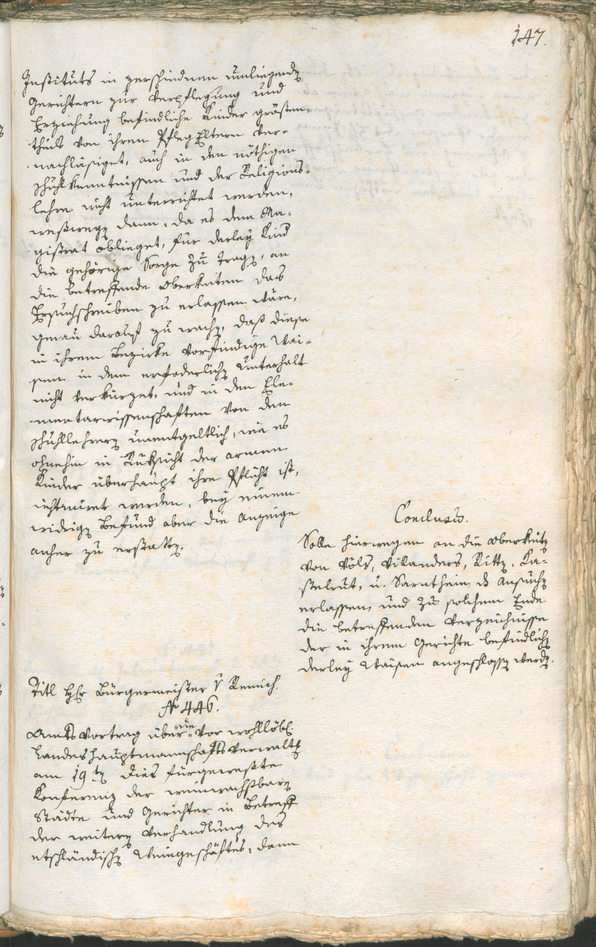 147.
Instituts in zerschiednen umliegendn
Gerichtern zur Verpflegung und
Erziehung befindliche Kinder grösten-
theils von ihren PflegEltern ver-
nachläsiget, auch in den nöthigen
Schulkenntnissen und der Religions-
lehre nicht unterrichtet werden,
weswegn dann, da es dem Ma-
gistrat oblieget, für derley Kind
die gehörige Sorge zu tragn, an
die betreffende Oberkeiten das
Ersuchschreiben zu erlassen wäre,
genau darauf zu wachn, daß diese
in ihrem Bezirke vorfindige Wai-
sen in dem erforderlichn Unterhalt
nicht verkürzet, und in den Ele-
mentarwissenschaften von den
Schullehrern unentgeltlich, wie es
ohnehin in Rüksicht der armen
Kinder überhaupt ihre Pflicht ist,
instruiret werden, bey einem
widrign Befund aber die Anzeige
anher zu erstattn.
Conclusum.
Solle hierwegen an die Oberkeitn
von Völs, Vilanders, Rittn, Ka-
stelrut, u. Sarnthein das Ansuchn
erlassen, und zu solchem Ende
die betreffenden Verzeichnisse
der in ihrem Gerichte befindlichn
derley Waisen angeschlossn werdn.
Titl Hr Bürgermeister v Remich.
N 446.
Amtsvortrag über die vor wohllöbl.
Landeshauptmannschaftsverwaltn
am 19tn dies fürgeweste
Konferenz der weinwachsbarn
Städte und Gerichter in Betreff
der weitern Verhandlung des
etschländischn Weingeschäftes, dann